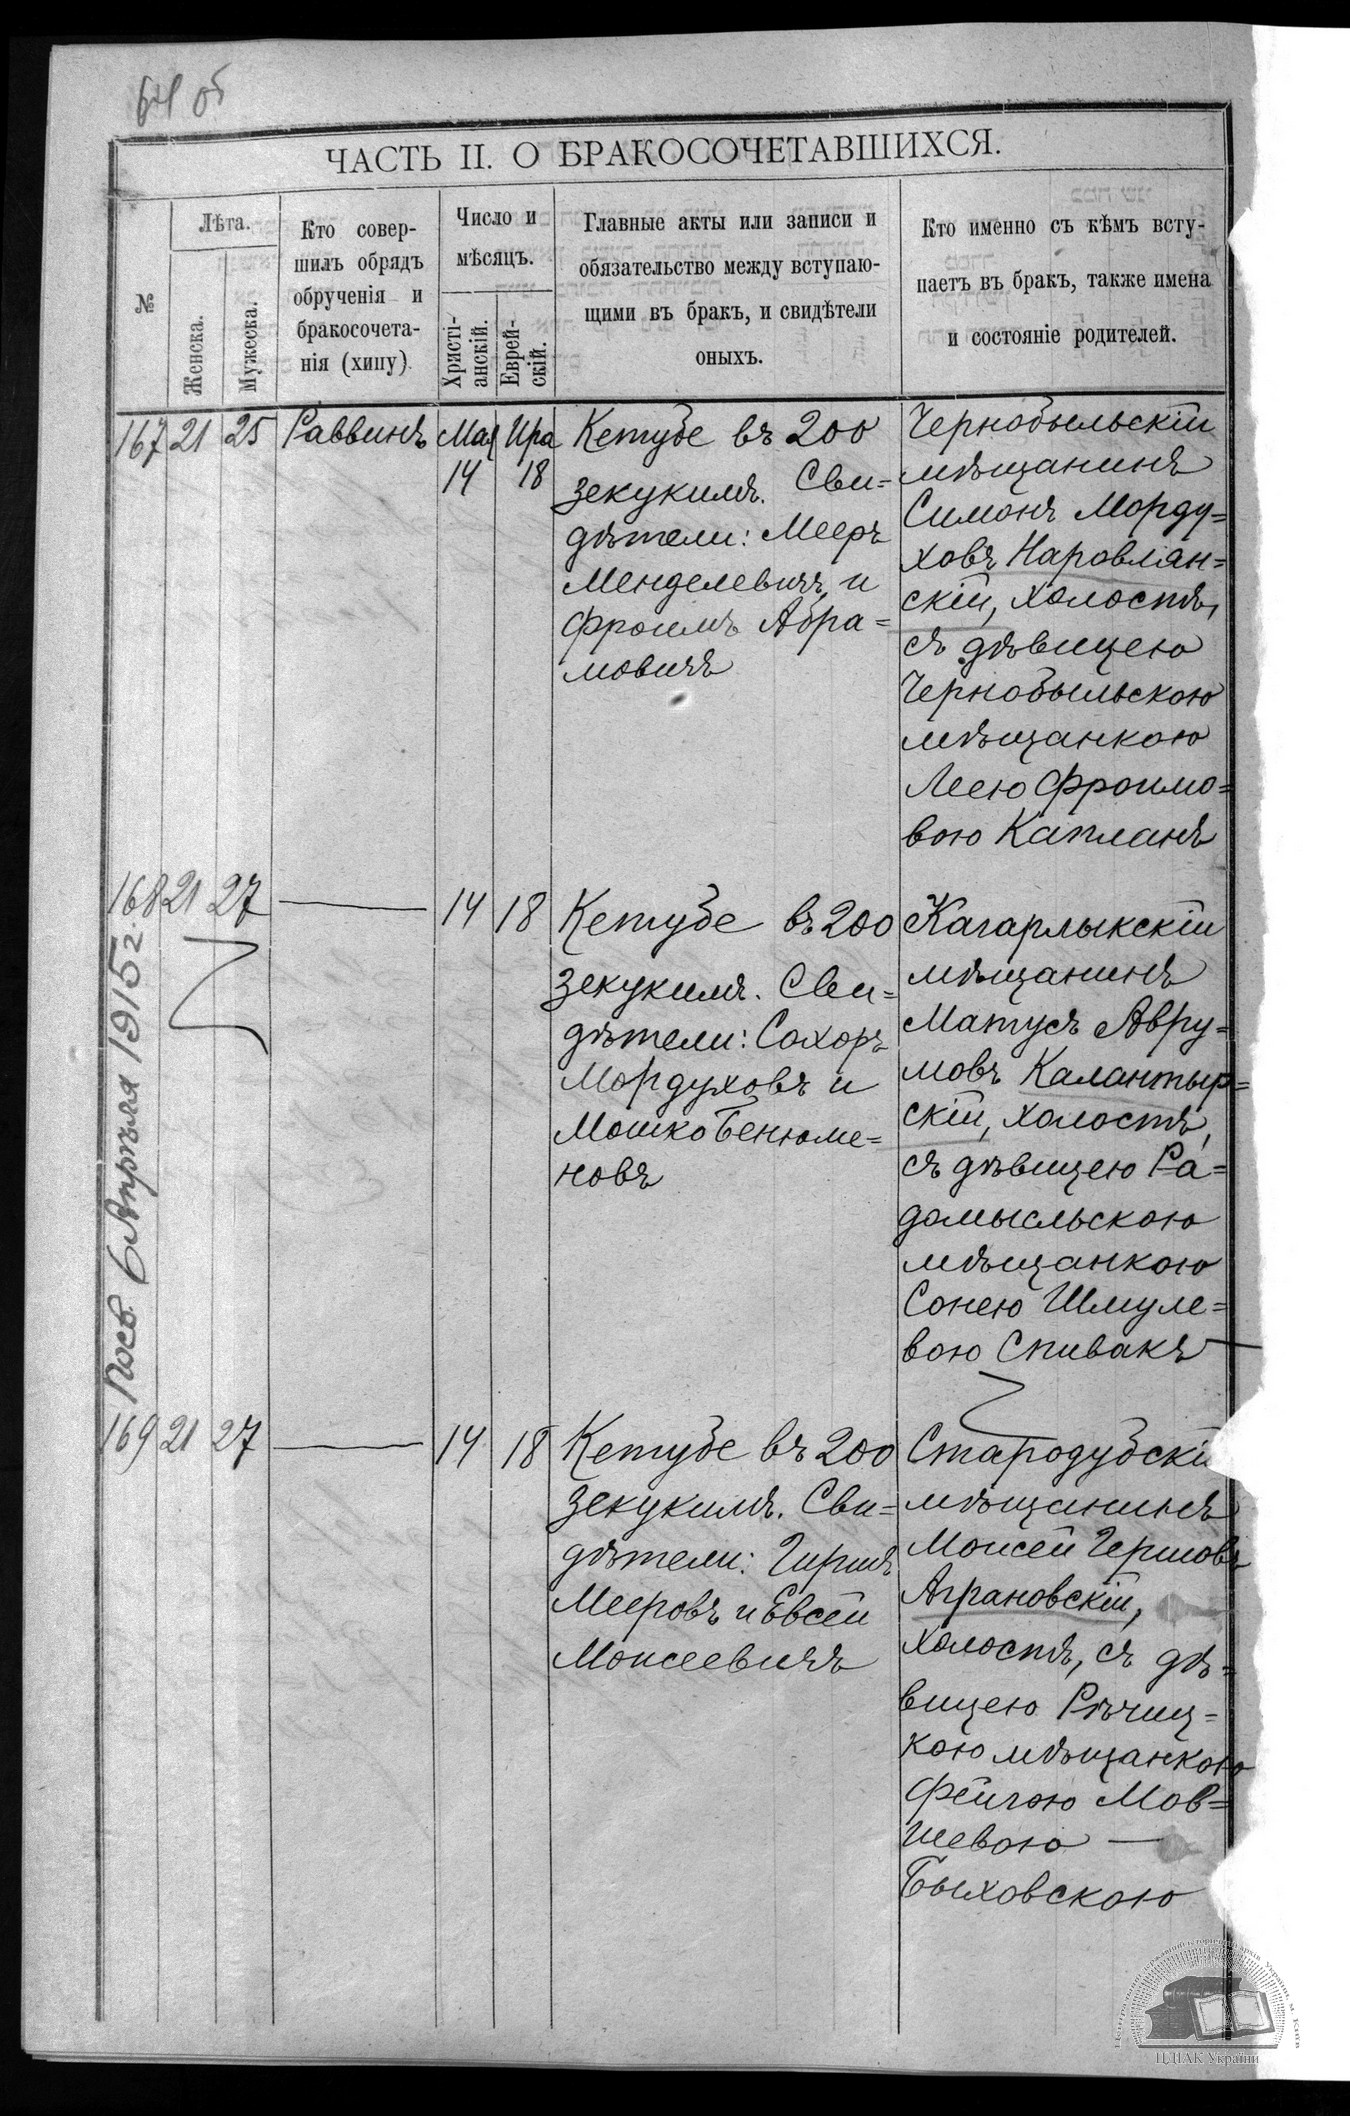 64 об
ЧАСТЬ II. О БРАКОСОЧЕТАВШИХСЯ.
№
Лѣта.
Женска.
Мужеска.
Кто совер-
шилъ обрядъ
обрученія и
бракосочета-
нія (хипу)
Число и
мѣсяцъ.
Христі-
анскій.
Еврей-
скій.
Главные акты или записи и
обязательство между вступаю-
щими въ бракъ, и свидѣтели
оныхъ.
Кто именно съ кѣмъ всту-
паетъ въ бракъ, также имена
и состояніе родителей.
167 21 25 Раввинъ Мая 14 Ира 18
Кетубе въ 200
зекукимъ. Сви=
дѣтели: Мееръ
Менделевичъ и
Фроимъ Абра=
мовичъ
Чернобыльскій
мѣщанинъ
Симонъ Морду=
ховъ Наровлян=
скій, холостъ,
съ дѣвицею
Чернобыльскою
мѣщанкою
Леею Фроимо=
вою Капланъ
168 21 27 — 14 18
Кетубе въ 200
зекукимъ. Сви=
дѣтели: Сохоръ
Мордуховъ и
Мошко Бенюме=
новъ
Кагарлыкскій
мѣщанинъ
Матусъ Авру=
мовъ Калантыр=
скій, холостъ,
съ дѣвицею Ра=
домысльскою
мѣщанкою
Сонею Шмуле=
вою Спивакъ —
Посв. 6 Апрѣля 1915 г.
169 21 27 — 14 18
Кетубе въ 200
зекукимъ. Сви=
дѣтели: Гиршъ
Мееровъ и Евсей
Моисеевичъ
Стародубскій
мѣщанинъ
Моисей Гершовъ
Аграновскій,
холостъ, съ дѣ=
вицею Рѣчиц=
кою мѣщанкою
Фейгою Мов=
шевою —
Быховскою
Центральний державний історичний архів України, м. Київ
ЦДІАК України